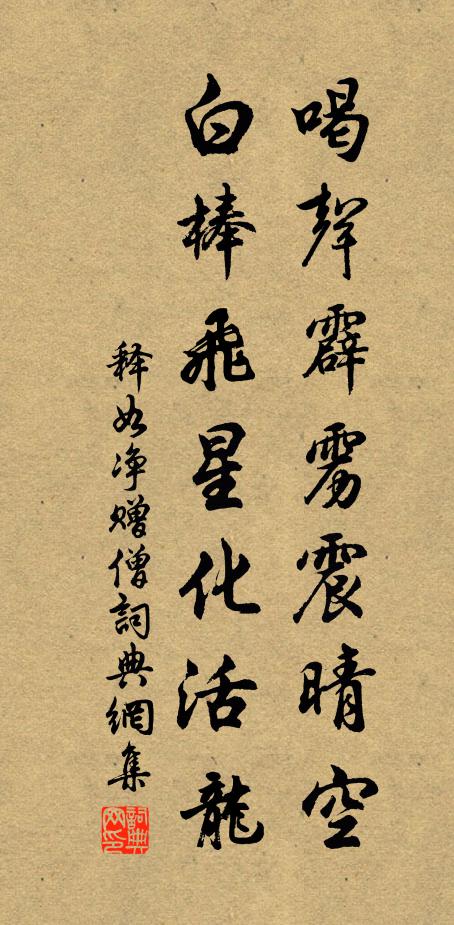 喝聲霹雳震晴空
白棒飛星化活龍
释如净赠僧詞典網集
詞典网印